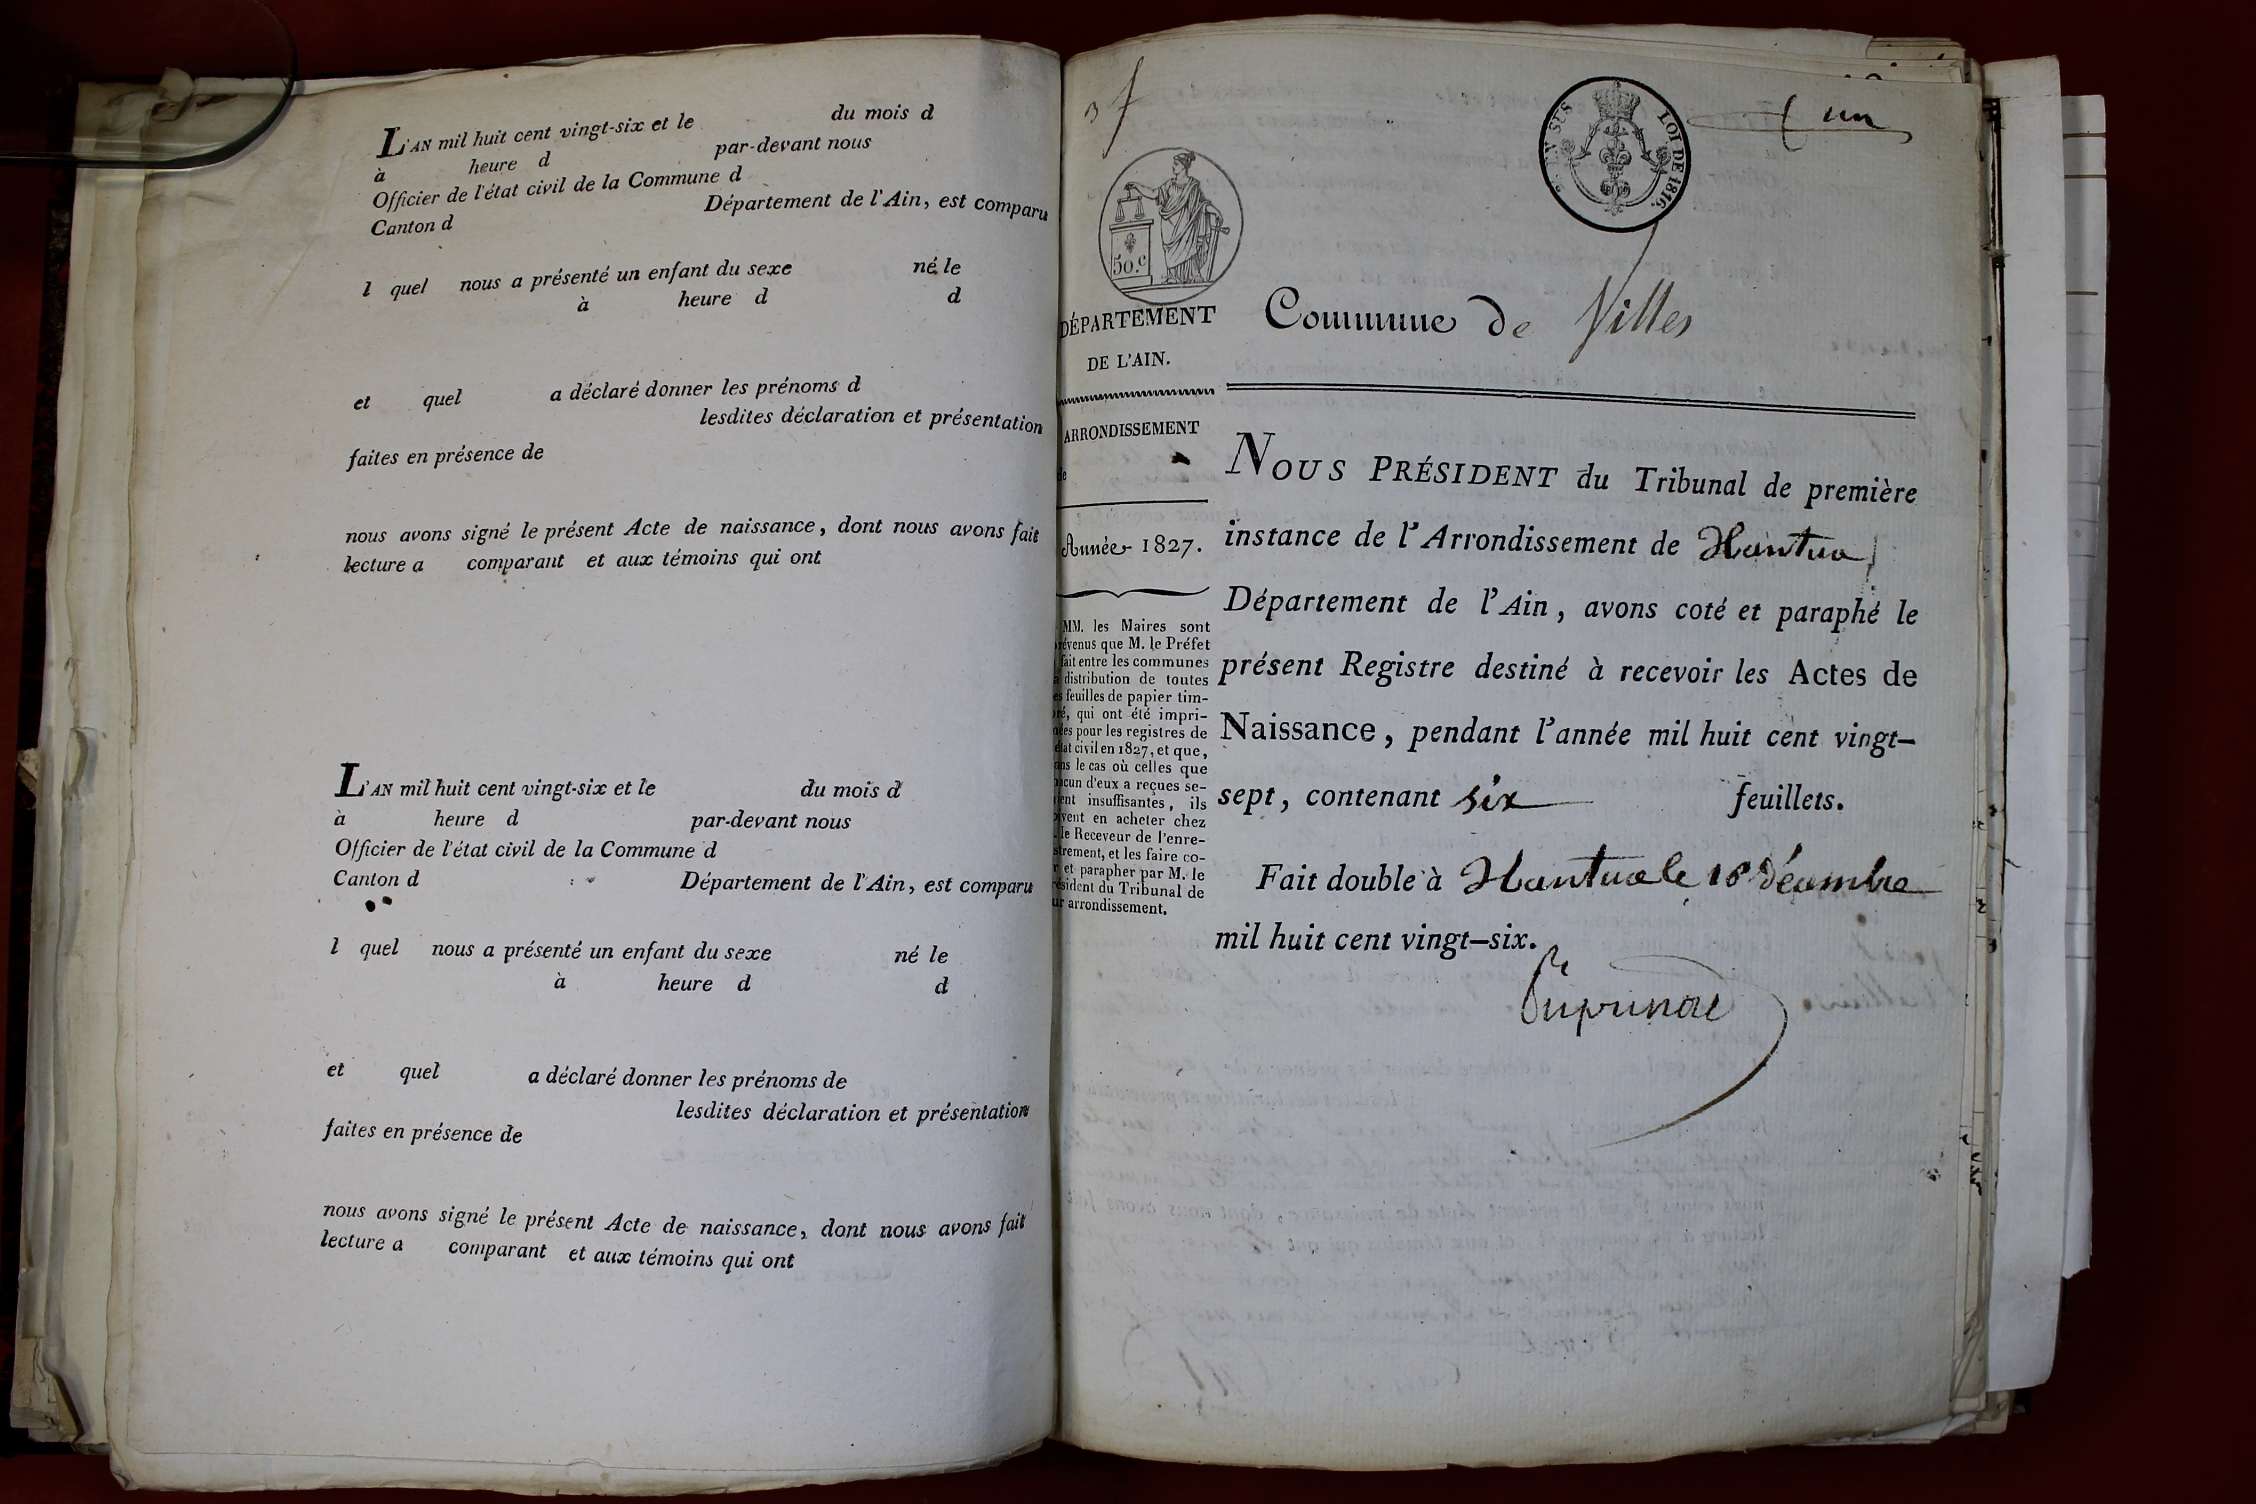 L'AN mil huit cent vingt-six et le du mois d
à heure d par-devant nous
Officier de l'état civil de la Commune d
Canton d Département de l'Ain, est comparu
l quel nous a présenté un enfant du sexe né le
à heure d d
et quel a déclaré donner les prénoms d
lesdites déclaration et présentation
faites en présence de
nous avons signé le présent Acte de naissance, dont nous avons fait
lecture a comparant et aux témoins qui ont
L'AN mil huit cent vingt-six et le du mois d
à heure d par-devant nous
Officier de l'état civil de la Commune d
Canton d Département de l'Ain, est comparu
l quel nous a présenté un enfant du sexe né le
à heure d d
et quel a déclaré donner les prénoms de
lesdites déclaration et présentation
faites en présence de
nous avons signé le présent Acte de naissance, dont nous avons fait
lecture a comparant et aux témoins qui ont
3
un
EN SUS LOI DE 1816.
50.c
DÉPARTEMENT
DE L'AIN.
ARRONDISSEMENT
de
Année 1827.
MM. les Maires sont
prévenus que M. le Préfet
fait entre les communes
la distribution de toutes
les feuilles de papier tim-
bré, qui ont été impri-
mées pour les registres de
état civil en 1827, et que,
dans le cas où celles que
chacun d'eux a reçues se-
raient insuffisantes, ils
doivent en acheter chez
M. le Receveur de l'enre-
gistrement, et les faire co-
ter et parapher par M. le
Président du Tribunal de
leur arrondissement.
Commune de Villes
NOUS PRÉSIDENT du Tribunal de première
instance de l'Arrondissement de Nantua
Département de l'Ain, avons coté et paraphé le
présent Registre destiné à recevoir les Actes de
Naissance, pendant l'année mil huit cent vingt-
sept, contenant six feuillets.
Fait double à Nantua le 18 décembre
mil huit cent vingt-six.